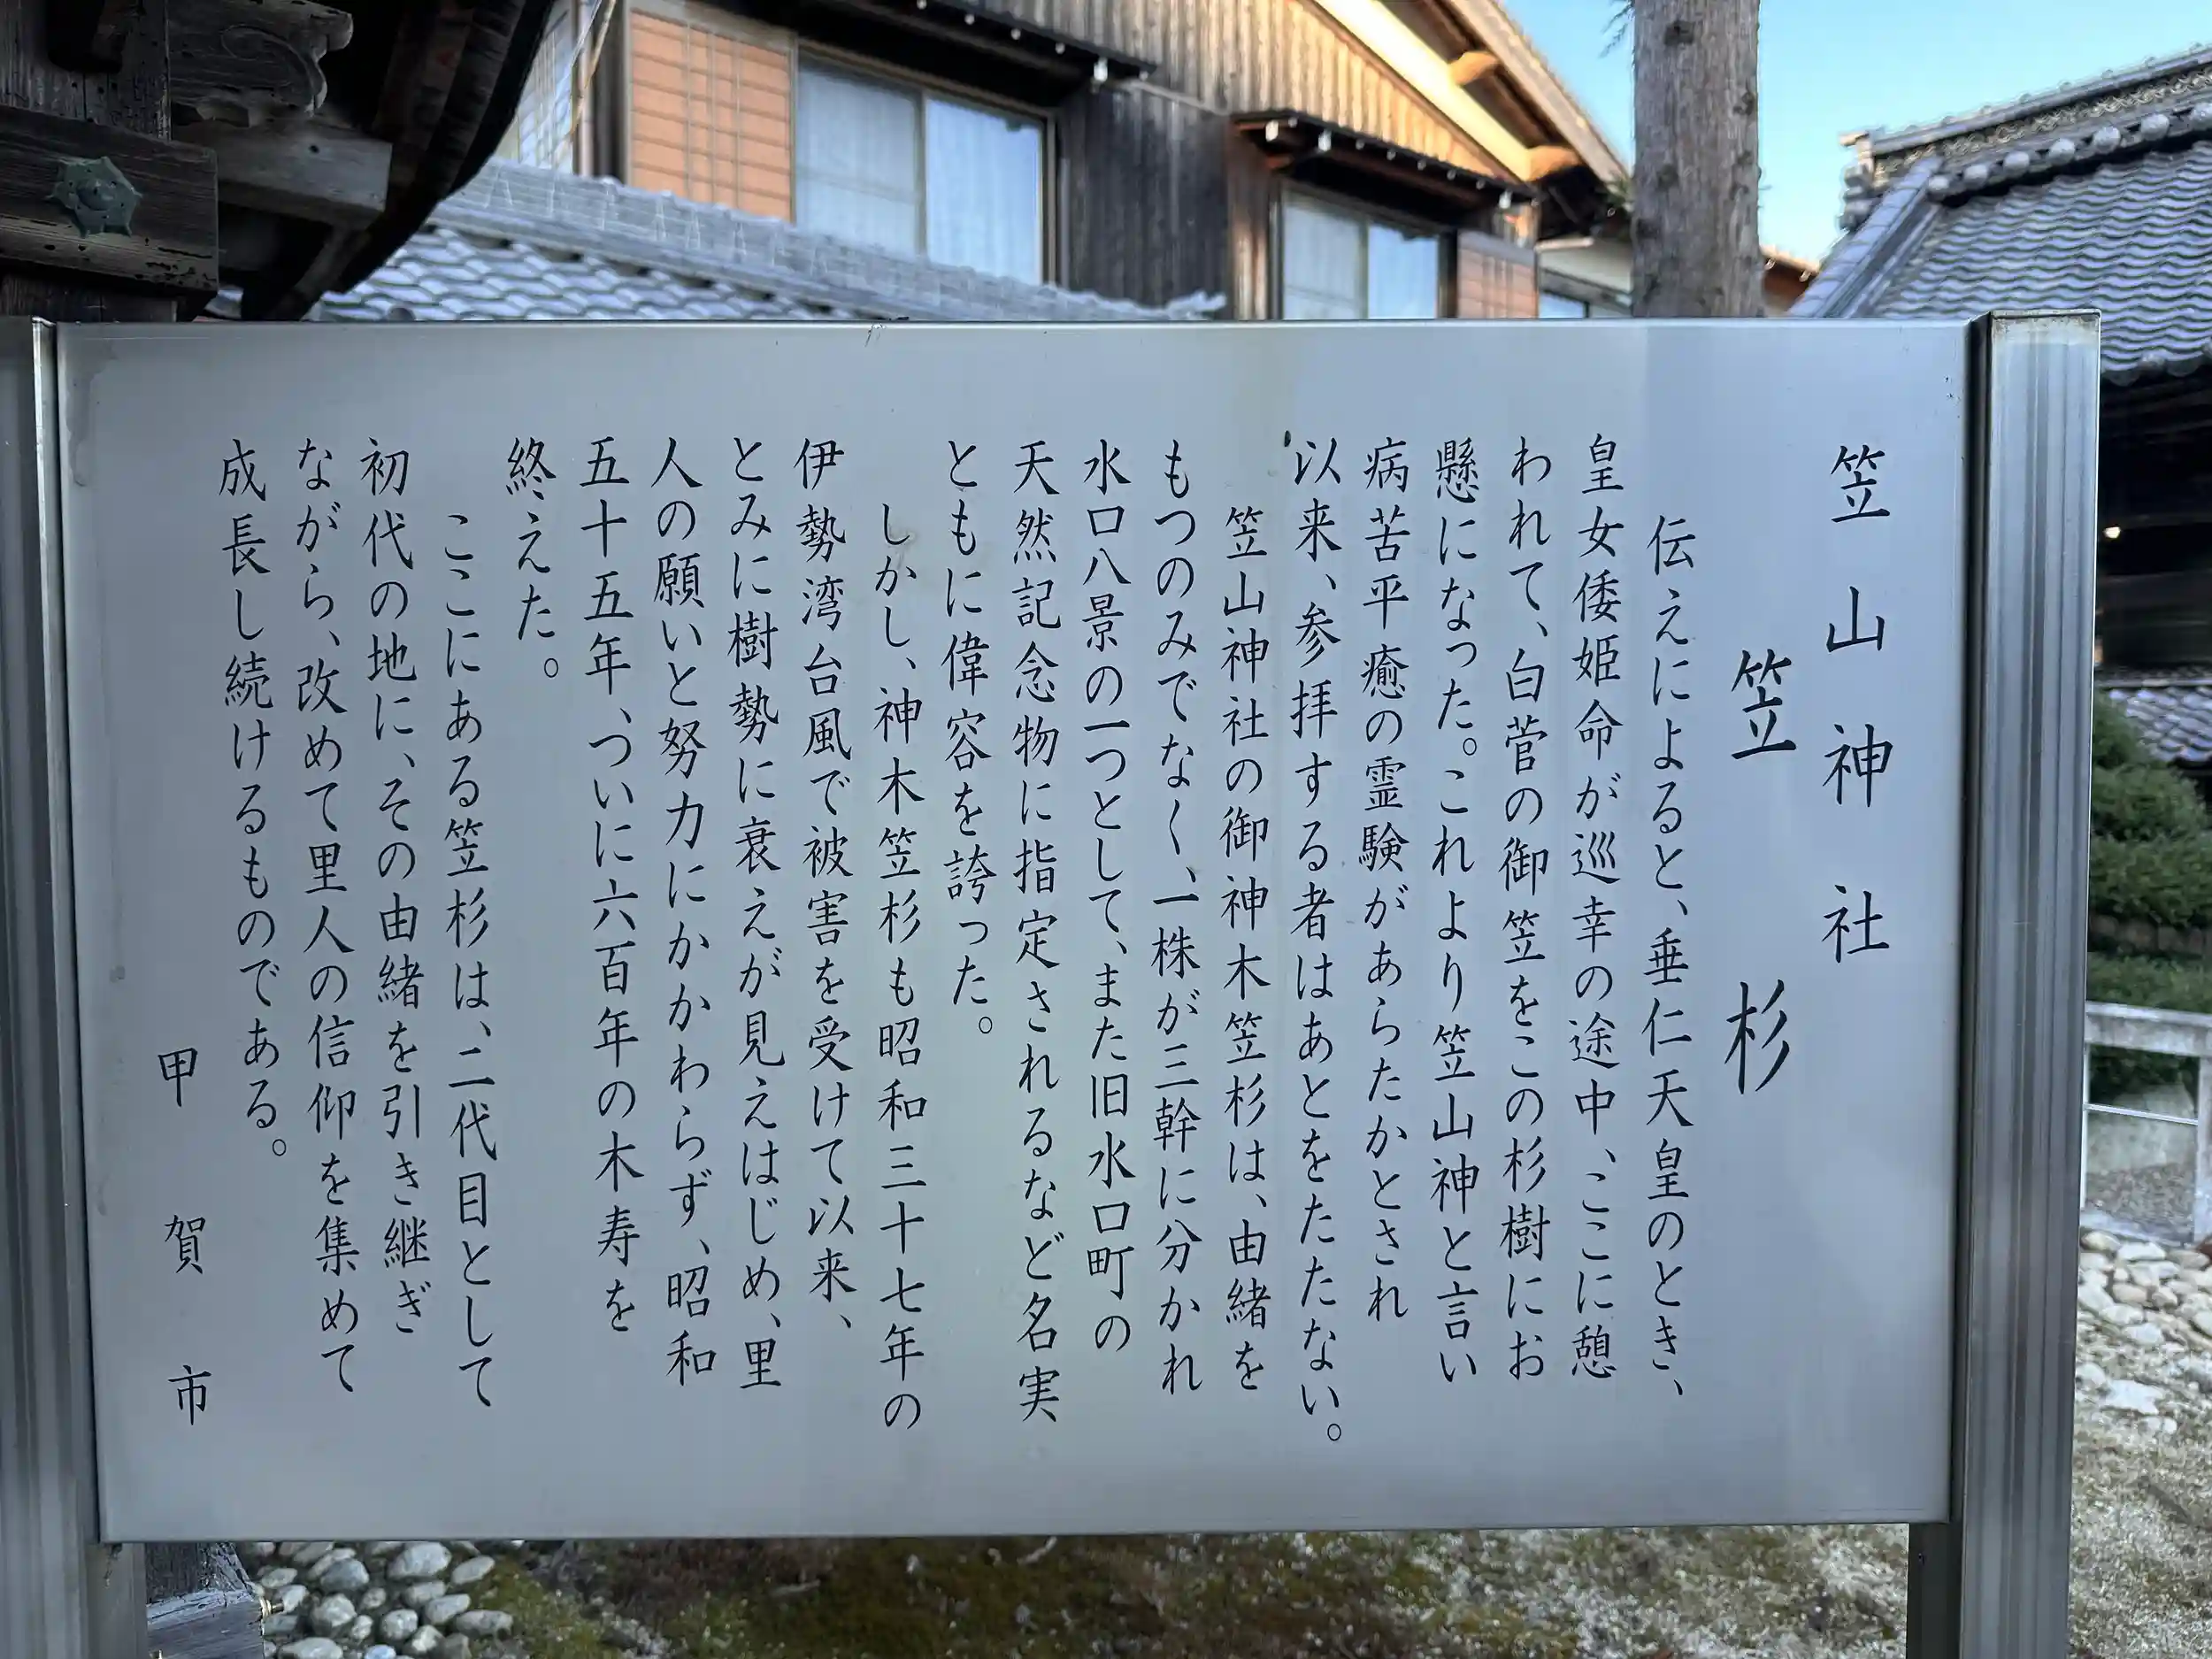 笠山神社
笠杉
伝えによると、垂仁天皇のとき、
皇女倭姫命が巡幸の途中、ここに憩
われて、白菅の御笠をこの杉樹にお
懸になった。これより笠山神と言い
病苦平癒の霊験があらたかとされ
以来、参拝する者はあとをたたない。
笠山神社の御神木笠杉は、由緒を
もつのみでなく、一株が三幹に分かれ
水口八景の一つとして、また旧水口町の
天然記念物に指定されるなど名実
ともに偉容を誇った。
しかし、神木笠杉も昭和三十七年の
伊勢湾台風で被害を受けて以来、
とみに樹勢に衰えが見えはじめ、里
人の願いと努力にかかわらず、昭和
五十五年、ついに六百年の木寿を
終えた。
ここにある笠杉は、二代目として
初代の地に、その由緒を引き継ぎ
ながら、改めて里人の信仰を集めて
成長し続けるものである。
甲賀市